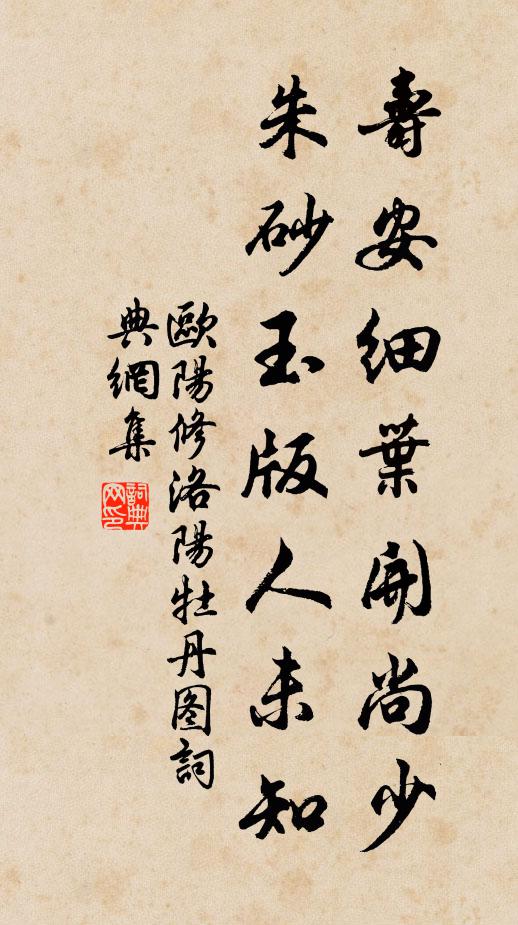 壽安细葉開尚少
朱砂玉版人未知
歐陽修洛陽牡丹图詞
典網集
詞典
网印